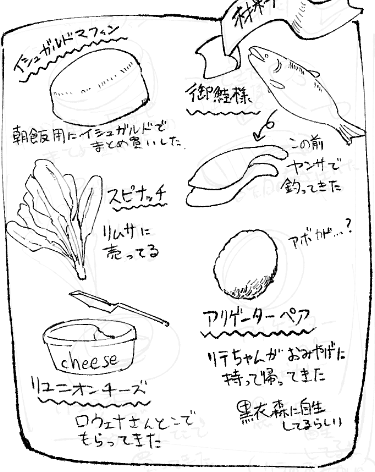 材料
イシュガルドマフィン
朝飯用にイシュガルドで
まとめ買いした
御鮭様
この前
ヤンサで
釣ってきた
スピナッチ
リムサに
売ってる
アボガド…?
アリゲーターペア
リテちゃんがおみやげに
持って帰ってきた
黒衣森に自生
してるらしい
cheese
リユニオンチーズ
ロウェナさんとこで
もらってきた